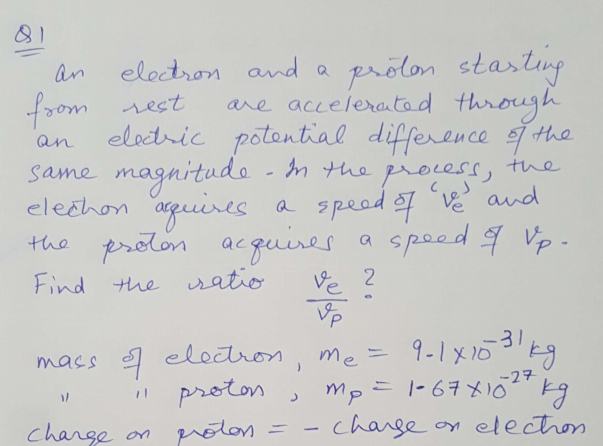 Q1
An electron and a proton starting
from rest are accelerated through
an electric potential difference of the
same magnitude - In the process, the
electron aquires a speed of 've' and
the proton acquires a speed of vp.
Find the ratio ve/vp ?
mass of electron, me = 9.1 x 10^-31 kg
" " proton, mp = 1.67 x 10^-27 kg
charge on proton = - charge on electron